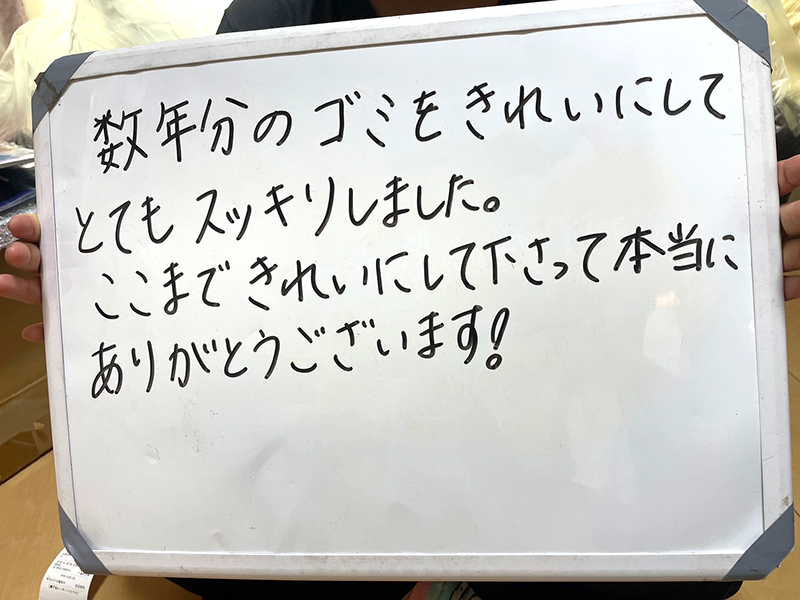 数年分のゴミをきれいにして
とてもスッキリしました。
ここまできれいにして下さって本当に
ありがとうございます!